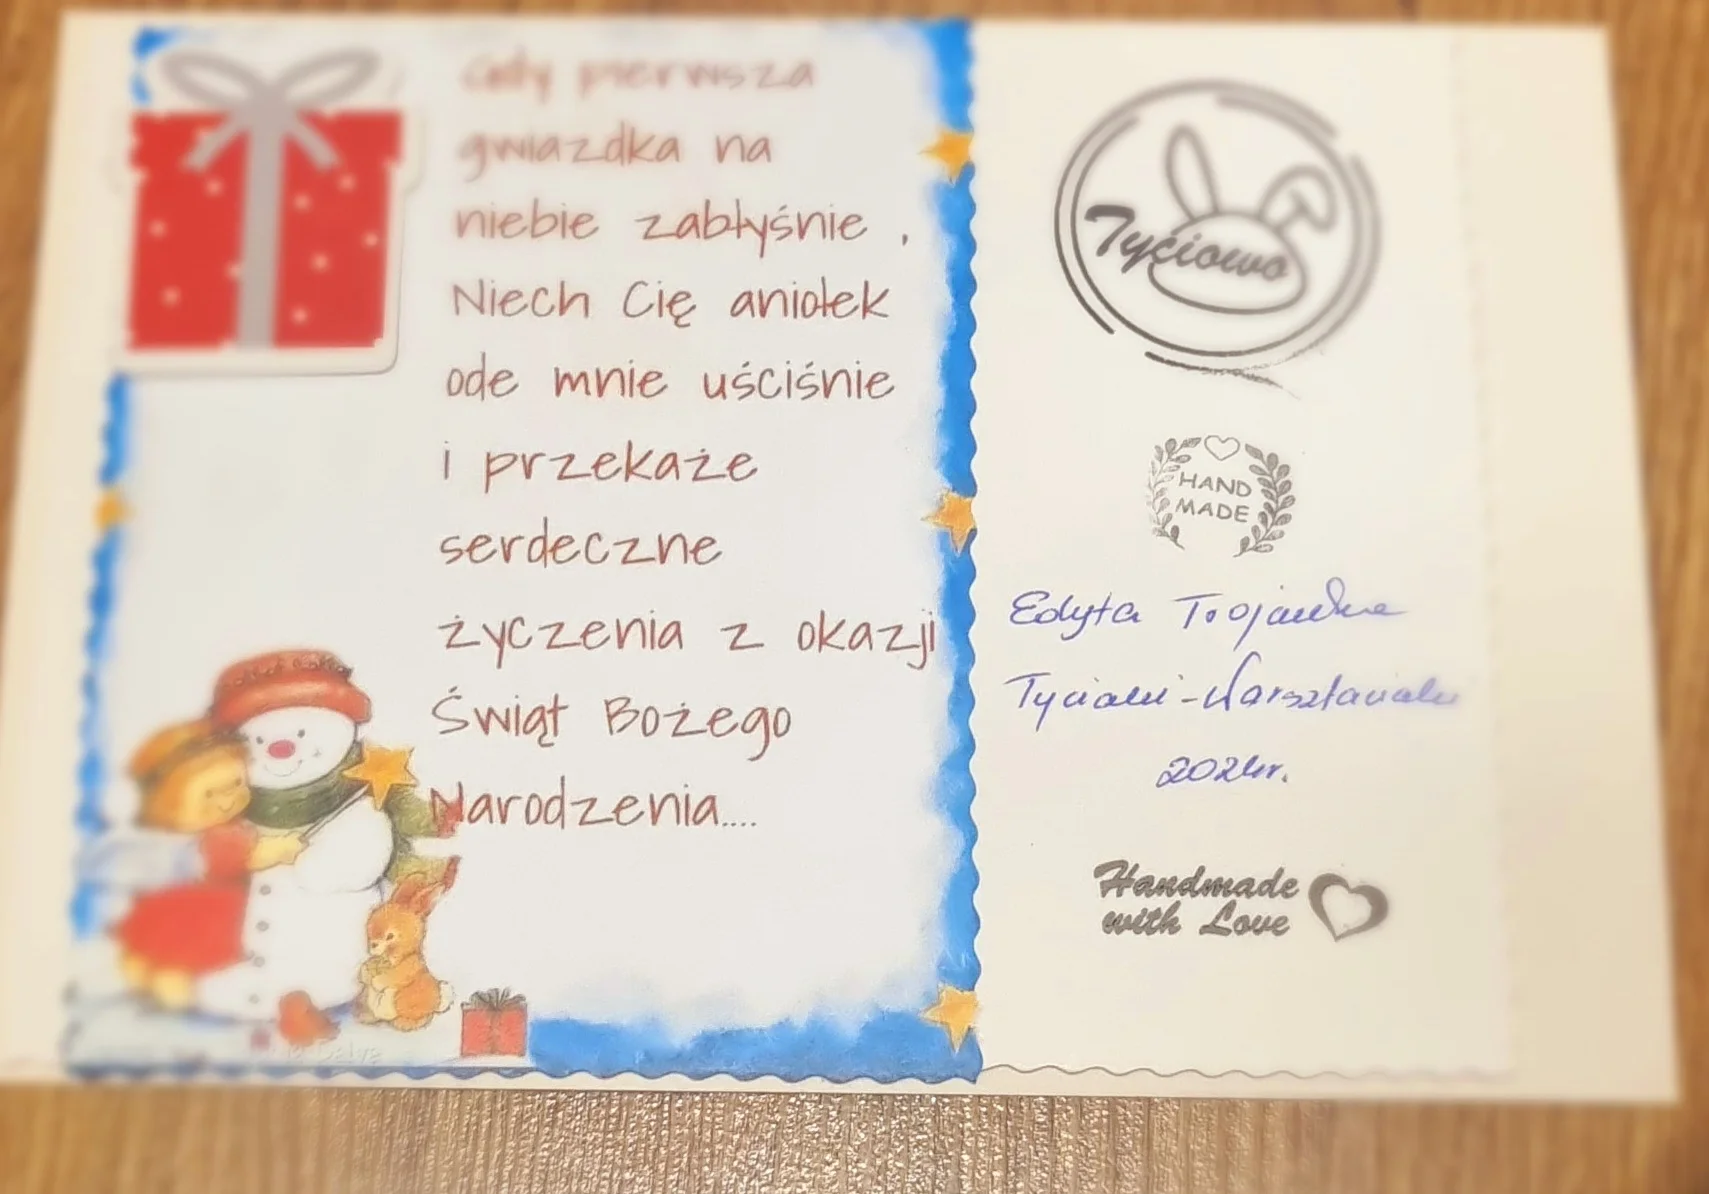 Gdy pierwsza
gwiazdka na
niebie zabłyśnie ,
Niech Cię aniołek
ode mnie uściśnie
i przekaże
serdeczne
życzenia z okazji
Świąt Bożego
Narodzenia....
Tyciowo
HAND
MADE
Edyta
2024r.
Handmade
with Love